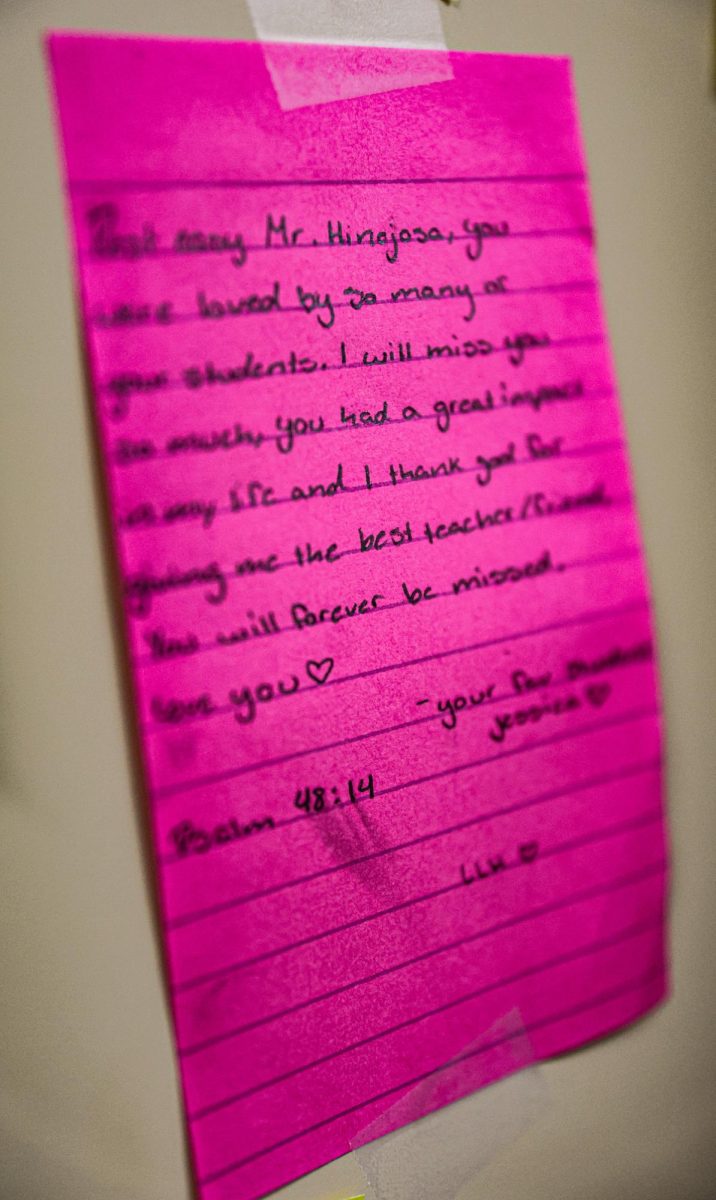 Rest easy Mr. Hinojosa, you
were loved by so many of
your students. I will miss you
so much, you had a great impact
in my life and I thank god for
giving me the best teacher/friend.
You will forever be missed.
love you♡
-your fav student
jessica♡
Psalm 48:14
LLH ♡